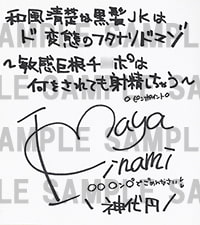 和風清楚な黒髪JKは
ド変態のフタナリドマゾ
〜敏感巨根チ ポは
何をされても射精しちゃう〜
SAMPLE SAMPLE
SAMPLE SAMPLE
SAMPLE SAMPLE
Maya
inami
○○○ンポでごめんなさい
\ 神代円 /